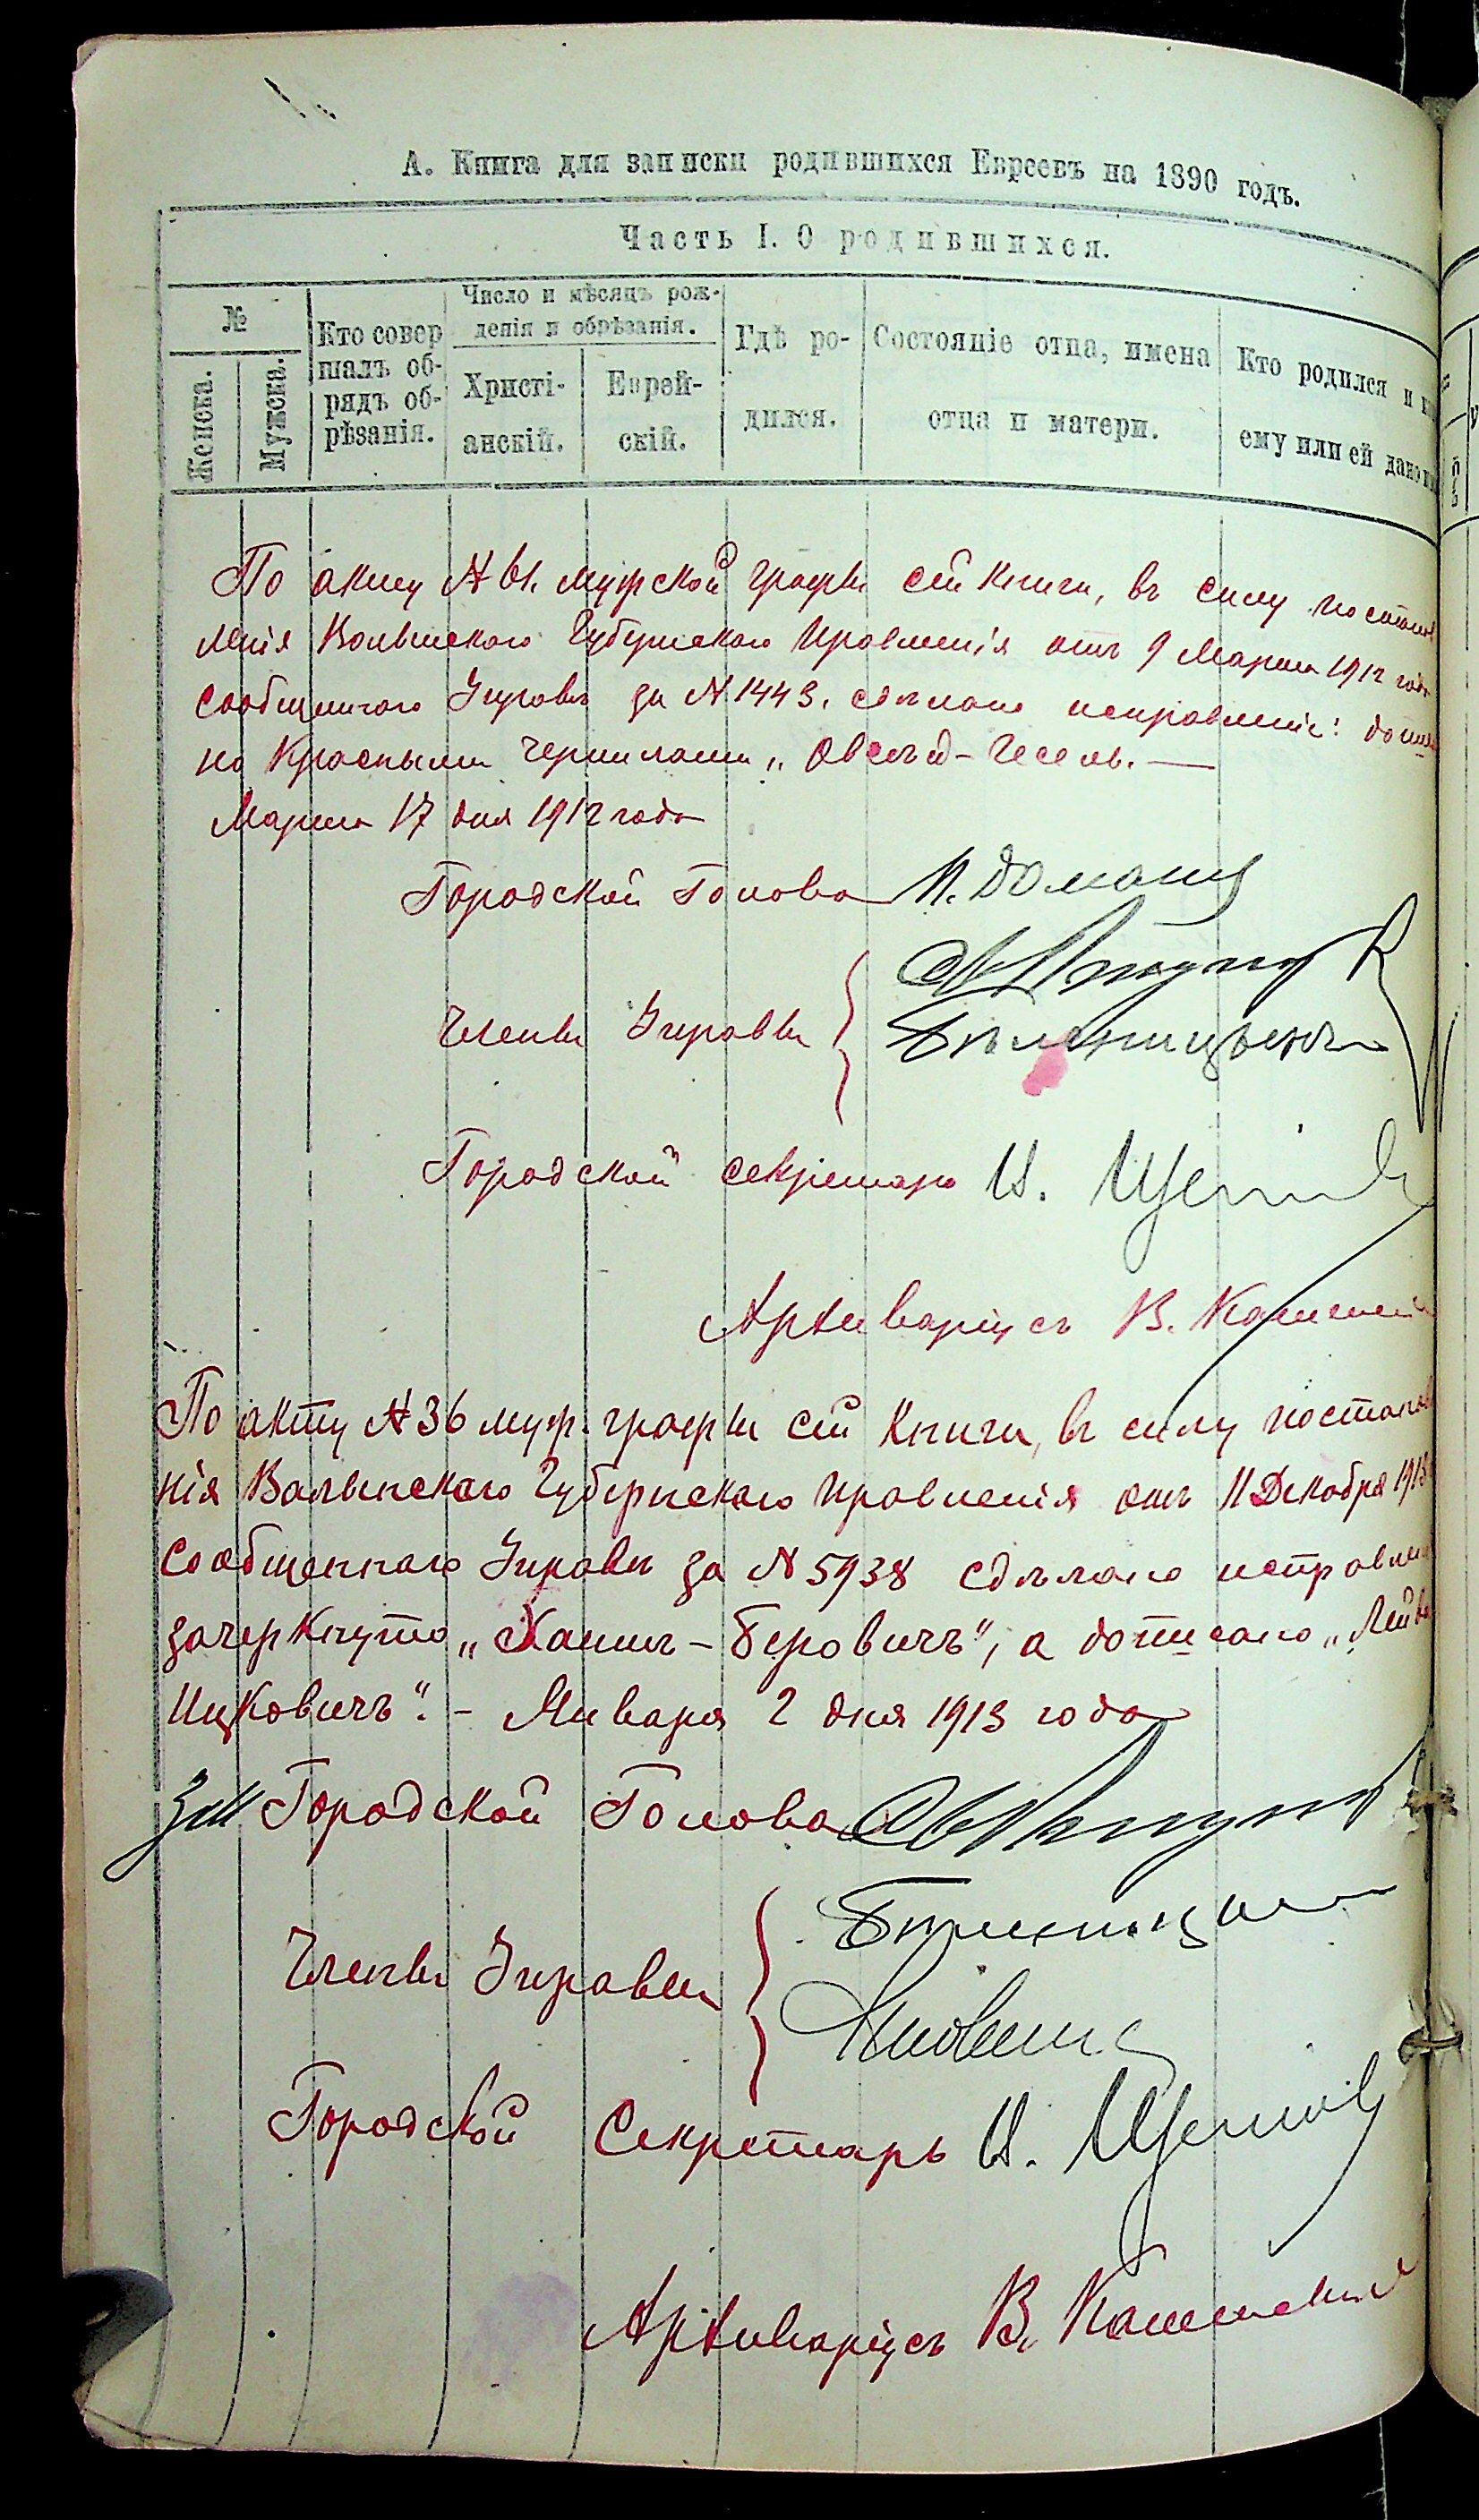 А. Книга для записки родившихся Евреевъ на 1890 годъ.
Часть I. О родившихся.
№
Женска.
Мужска.
Кто совер
шалъ об-
рядъ об-
рѣзанія.
Число и мѣсяцъ рож-
денія и обрѣзанія.
Христі-
анскій.
Еврей-
скій.
Гдѣ ро-
дился.
Состояніе отца, имена
отца и матери.
Кто родился и
ему или ей дано
По акту № 61. мужской графы сей книги, въ силу постанов
ленія Волынскаго Губернскаго Правленія отъ 9 Марта 1912 года
сообщеннаго Управѣ за № 1443. сдѣлано исправленіе: допи
но красными чернилами „ -
Марта 17 дня 1912 года
Городской Голова
Члены Управы
Городской секретарь И.
Архиваріусъ В.
По акту № 36 муж. графы сей книги, въ силу постановл
нія Волынскаго Губернскаго Правленія отъ 11 Декабря 191
сообщеннаго Управѣ за № 5938 сдѣлано исправлен
зачеркнуто „Хаимъ-Беровичъ", а дописано „Лейба
Ицковичъ". - Января 2 дня 1913 года
Городской Голова
Члены Управы
Городской Секретарь И.
Архиваріусъ В.